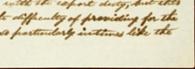 with the export duty, but this
to difficulty of providing for the
a particularly intimes like the